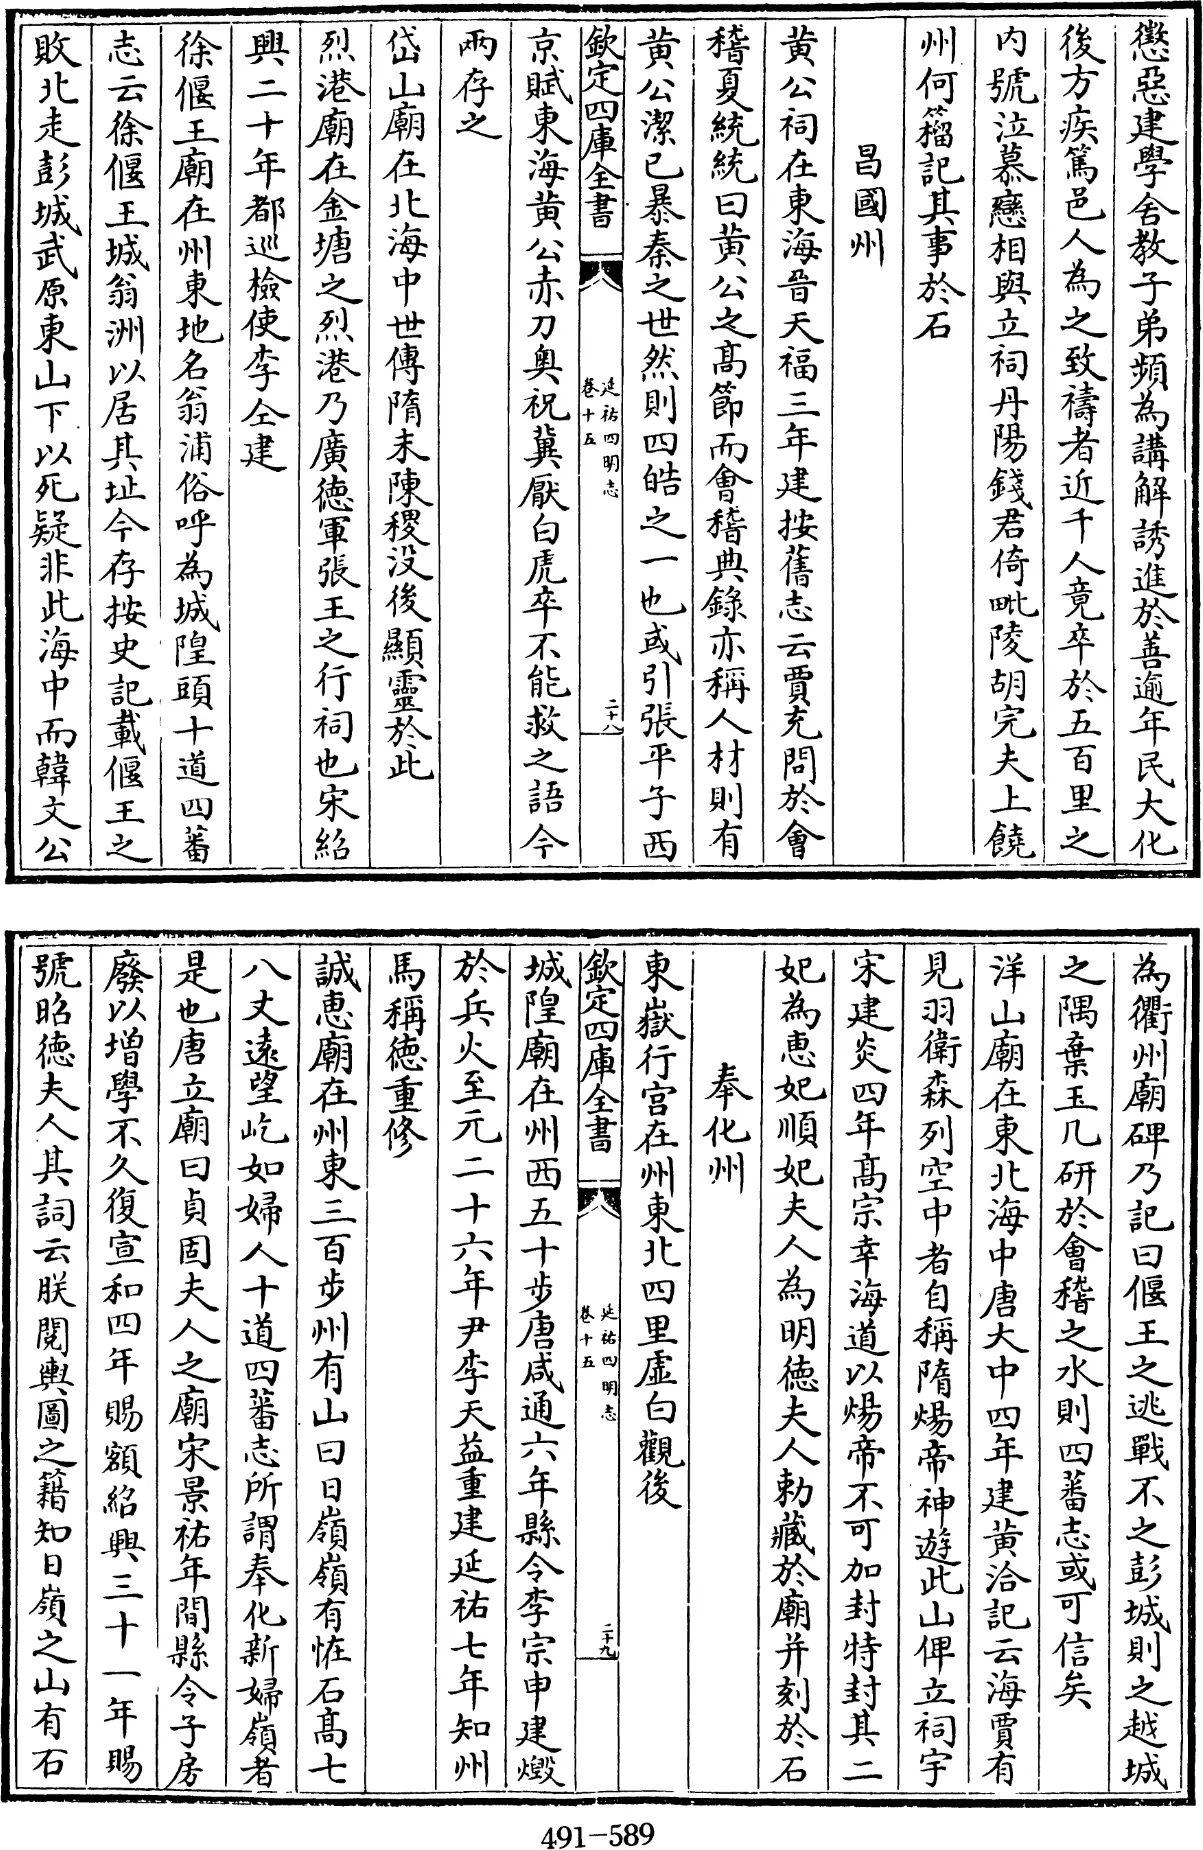 懲惡建學舍教子弟頻為講解誘進於善逾年民大化
後方疾篤邑人為之致禱者近千人竟卒於五百里之
内號泣慕戀相與立祠丹陽錢君倚毗陵胡完夫上饒
州何籀記其事於石
昌國州
黄公祠在東海晉天福三年建按舊志云賈充問於會
稽夏統統曰黄公之髙節而會稽典錄亦稱人材則有
黄公潔已暴秦之世然則四皓之一也或引張平子西
欽定四庫全書
延祐四明志
卷十五
二十八
京賦東海黄公赤刀奥祝冀厭白虎卒不能救之語今
兩存之
岱山廟在北海中世傳隋末陳稷没後顯靈於此
烈港廟在金塘之烈港乃廣徳軍張王之行祠也宋紹
興二十年都巡檢使李仝建
徐偃王廟在州東地名翁浦俗呼為城隍頭十道四蕃
志云徐偃王城翁洲以居其址今存按史記載偃王之
敗北走彭城武原東山下以死疑非此海中而韓文公
為衢州廟碑乃記曰偃王之逃戰不之彭城則之越城
之隅棄玉几研於會稽之水則四蕃志或可信矣
洋山廟在東北海中唐大中四年建黄洽記云海賈有
見羽衛森列空中者自稱隋煬帝神遊此山俾立祠宇
宋建炎四年髙宗幸海道以煬帝不可加封特封其二
妃為惠妃順妃夫人為明徳夫人勅藏於廟并刻於石
奉化州
東嶽行宫在州東北四里虛白觀後
欽定四庫全書
延祐四明志
卷十五
二十九
城隍廟在州西五十步唐咸通六年縣令李宗申建燬
於兵火至元二十六年尹李天益重建延祐七年知州
馬稱徳重修
誠惠廟在州東三百步州有山曰日嶺嶺有恠石髙七
八丈遠望屹如婦人十道四蕃志所謂奉化新婦嶺者
是也唐立廟曰貞固夫人之廟宋景祐年間縣令子房
廢以增學不久復宣和四年賜額紹興三十一年賜
號昭徳夫人其詞云朕閲輿圖之籍知日嶺之山有石
491-589